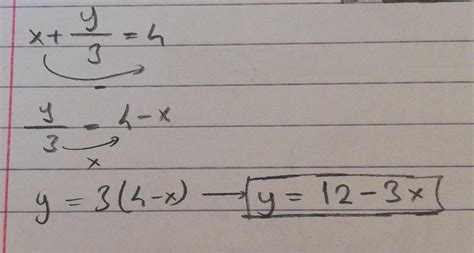 x + y/3 = 4
-
y/3 = 4 - x
x
y = 3(4-x) → y = 12 - 3x